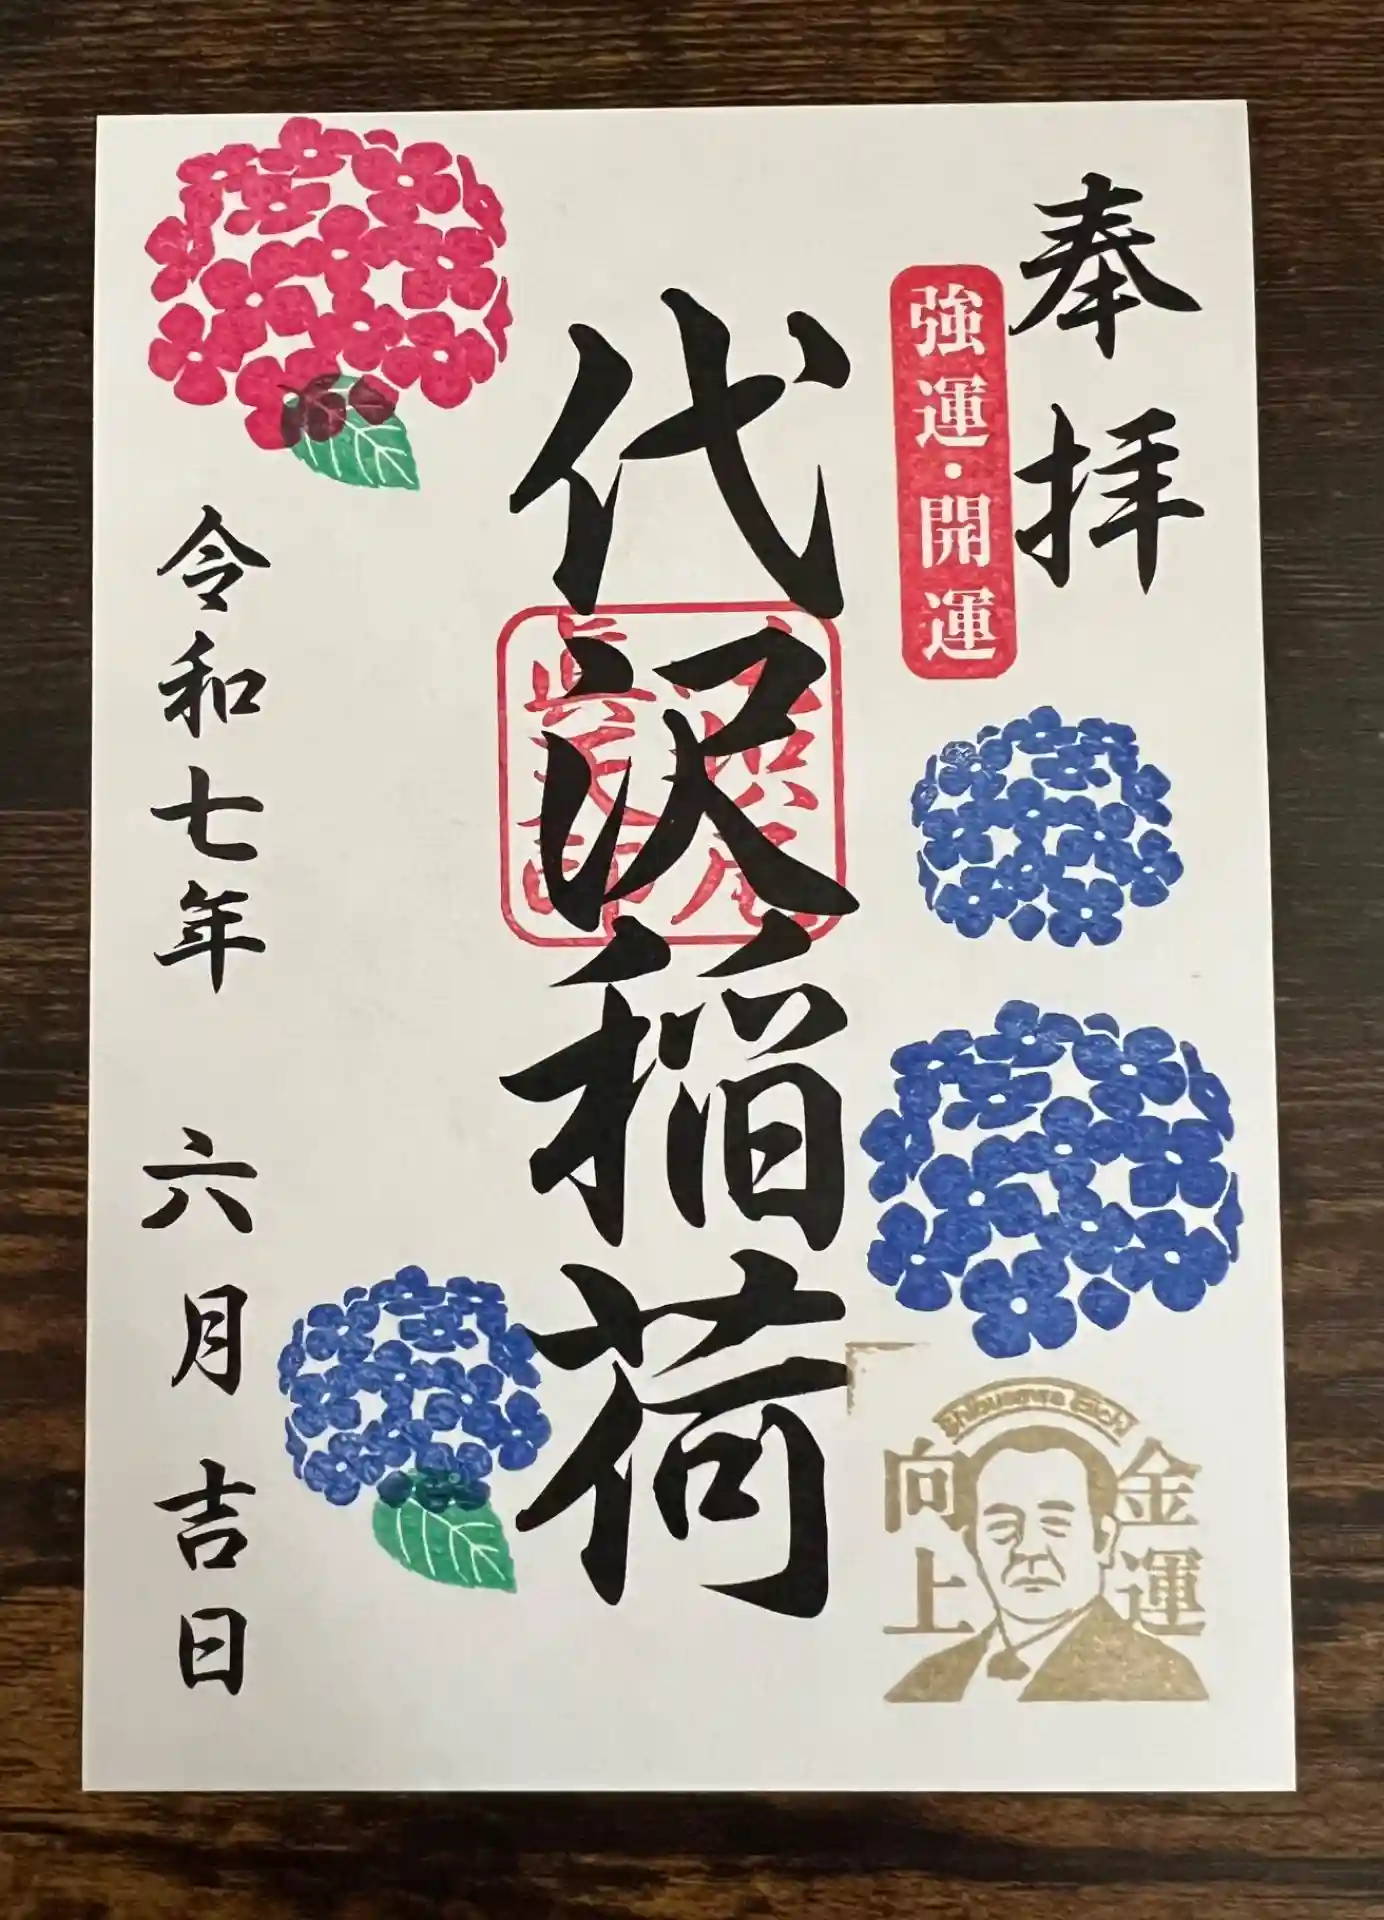 奉拝
強運・開運
金運
向上
Shibusawa Eiichi
代沢稲荷
令和七年 六月吉日